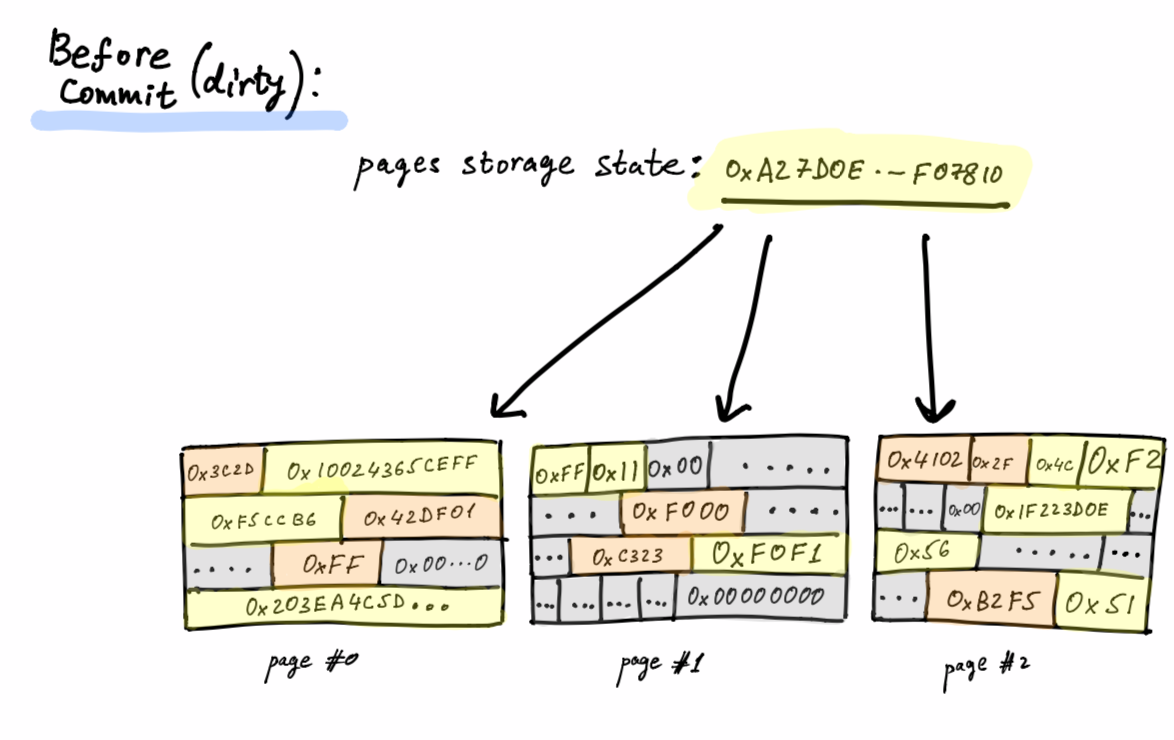 Before
Commit (dirty):
pages storage state: 0xA27D0E...F07810
0x3C2D 0x10024365CEFF
0xF5CCB6 0x42DF01
.... 0xFF 0x00...0
0x203EA4C5D...
page #0
0xFF 0x11 0x00 .....
... 0xF000 ....
... 0xC323 0xF0F1
... ... ... ... 0x00000000
page #1
0x4102 0x2F 0x4C 0xF2
... ... 0x00 0x1F223D0E ...
0x56 ..... ...
... 0xB2F5 0x51
page #2